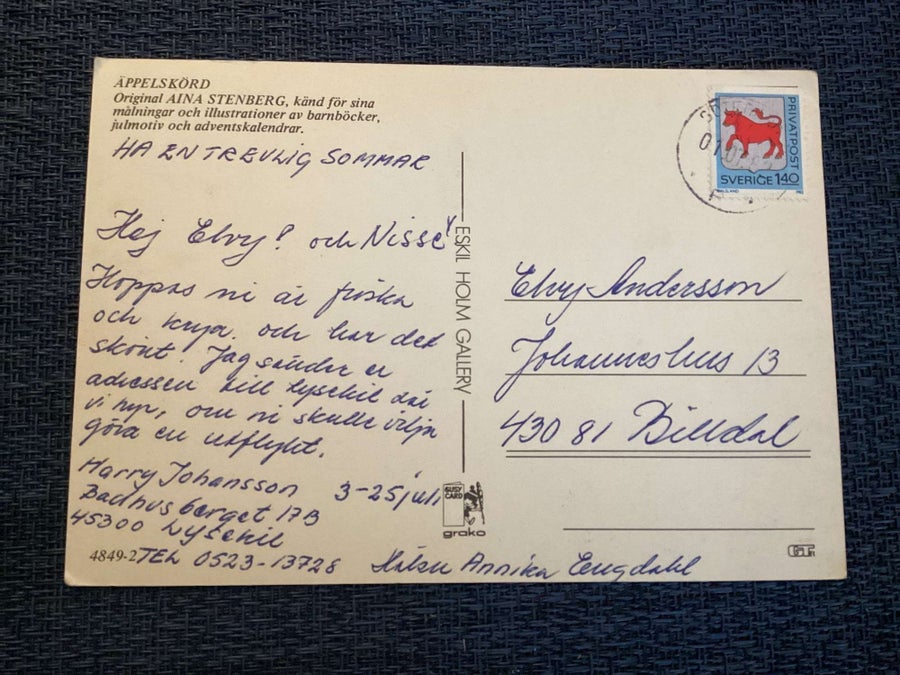 ÄPPELSKÖRD
Original AINA STENBERG, känd för sina
målningar och illustrationer av barnböcker,
julmotiv och adventskalendrar.
HA EN TREVLIG SOMMAR
Hej Elvy! och Nisse
Hoppas ni är friska
och krya. och har det
skönt. Jag sänder er
adressen till Lysekil där
vi hyr, om ni skulle vilja
göra en utflykt.
Harry Johansson 3-25 juli
Badhusberget 17B
45300 Lysekil
TEL 0523-13728 Hälsn Annika Engdahl
4849-2
ESKIL HOLM GALLERY
BUSY CARD
grako
PRIVATPOST
SVERIGE 140
Elvy Andersson
Johanneshus 13
430 81 Billdal